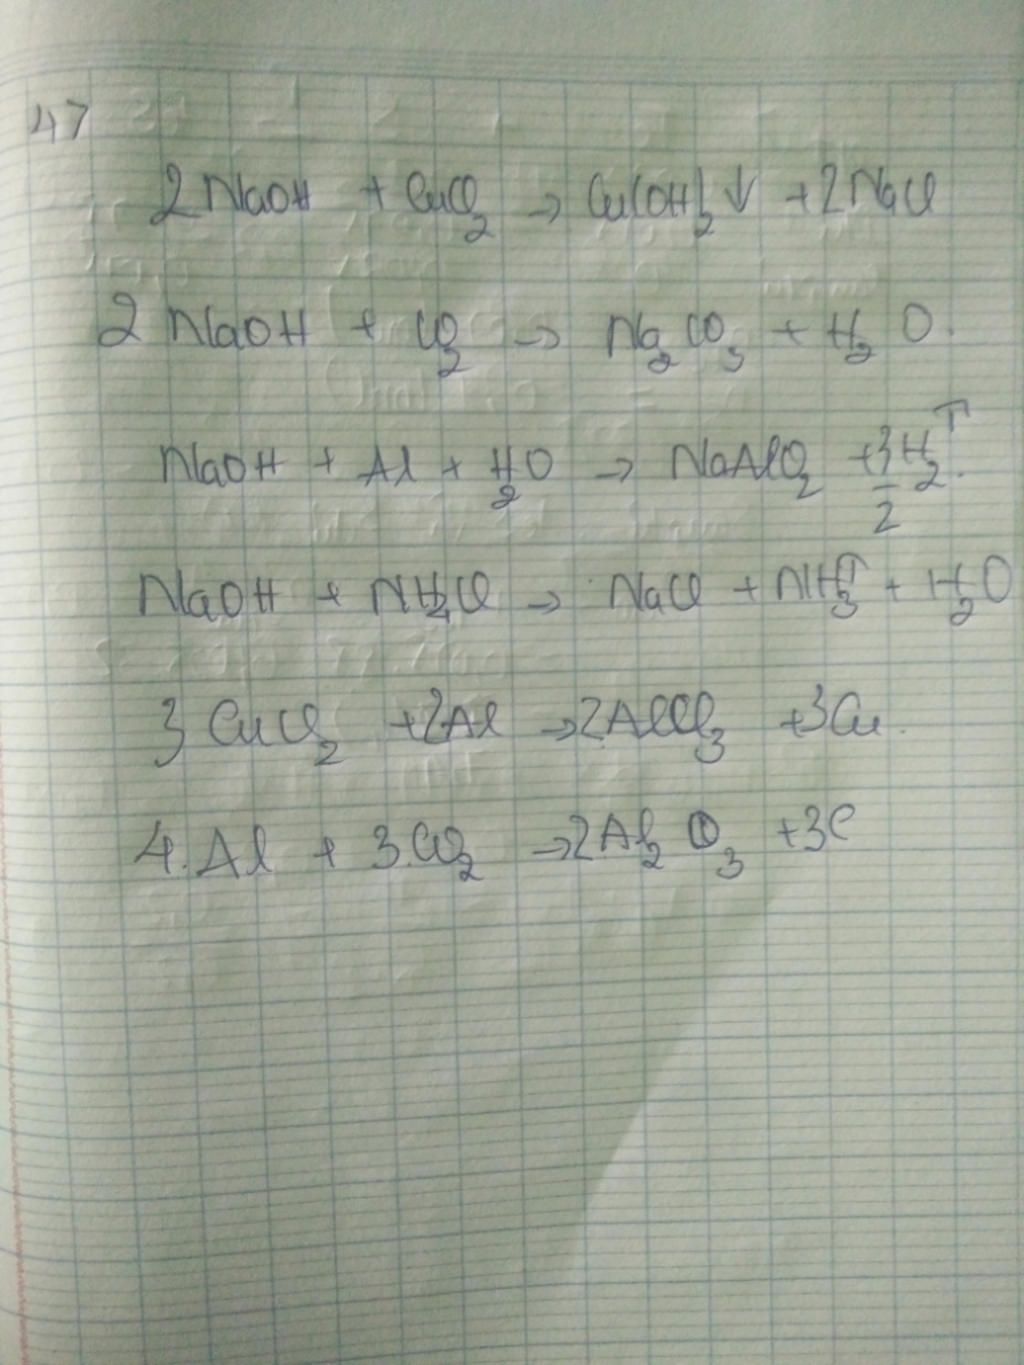 47
2NaOH + CuCl₂ → Cu(OH)₂↓ + 2NaCl
2 NaOH + CO₂ → Na₂CO₃ + H₂O.
NaOH + Al + H₂O → NaAlO₂ + 3/2 H₂↑.
NaOH + NH₄Cl → NaCl + NH₃↑ + H₂O
3 CuCl₂ + 2Al → 2AlCl₃ + 3Cu.
4.Al + 3.CO₂ → 2.Al₂O₃ + 3C